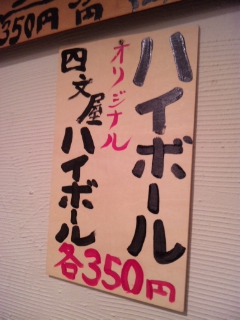 350円
ハイボール
オリジナル
四文屋ハイボール
各350円